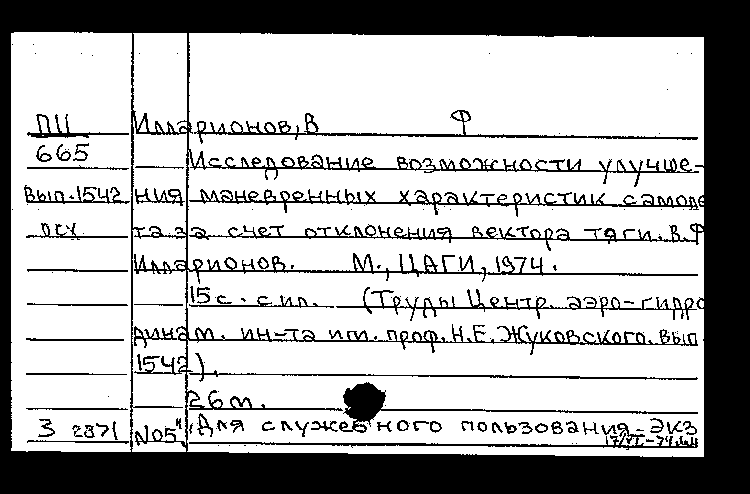 ПЦ Илларионов, В Ф
665 Исследование возможности улучше-
Вып.1542 ния маневренных характеристик самоле
псч та за счет отклонения вектора тяги. В.Ф
Илларионов. М., ЦАГИ, 1974.
15 с. с ил. (Труды Центр. аэро-гидро
динам. ин-та им. проф. Н.Е. Жуковского. Вып
1542).
26 т.
3 2871 N05". "Для служебного пользования - Экз